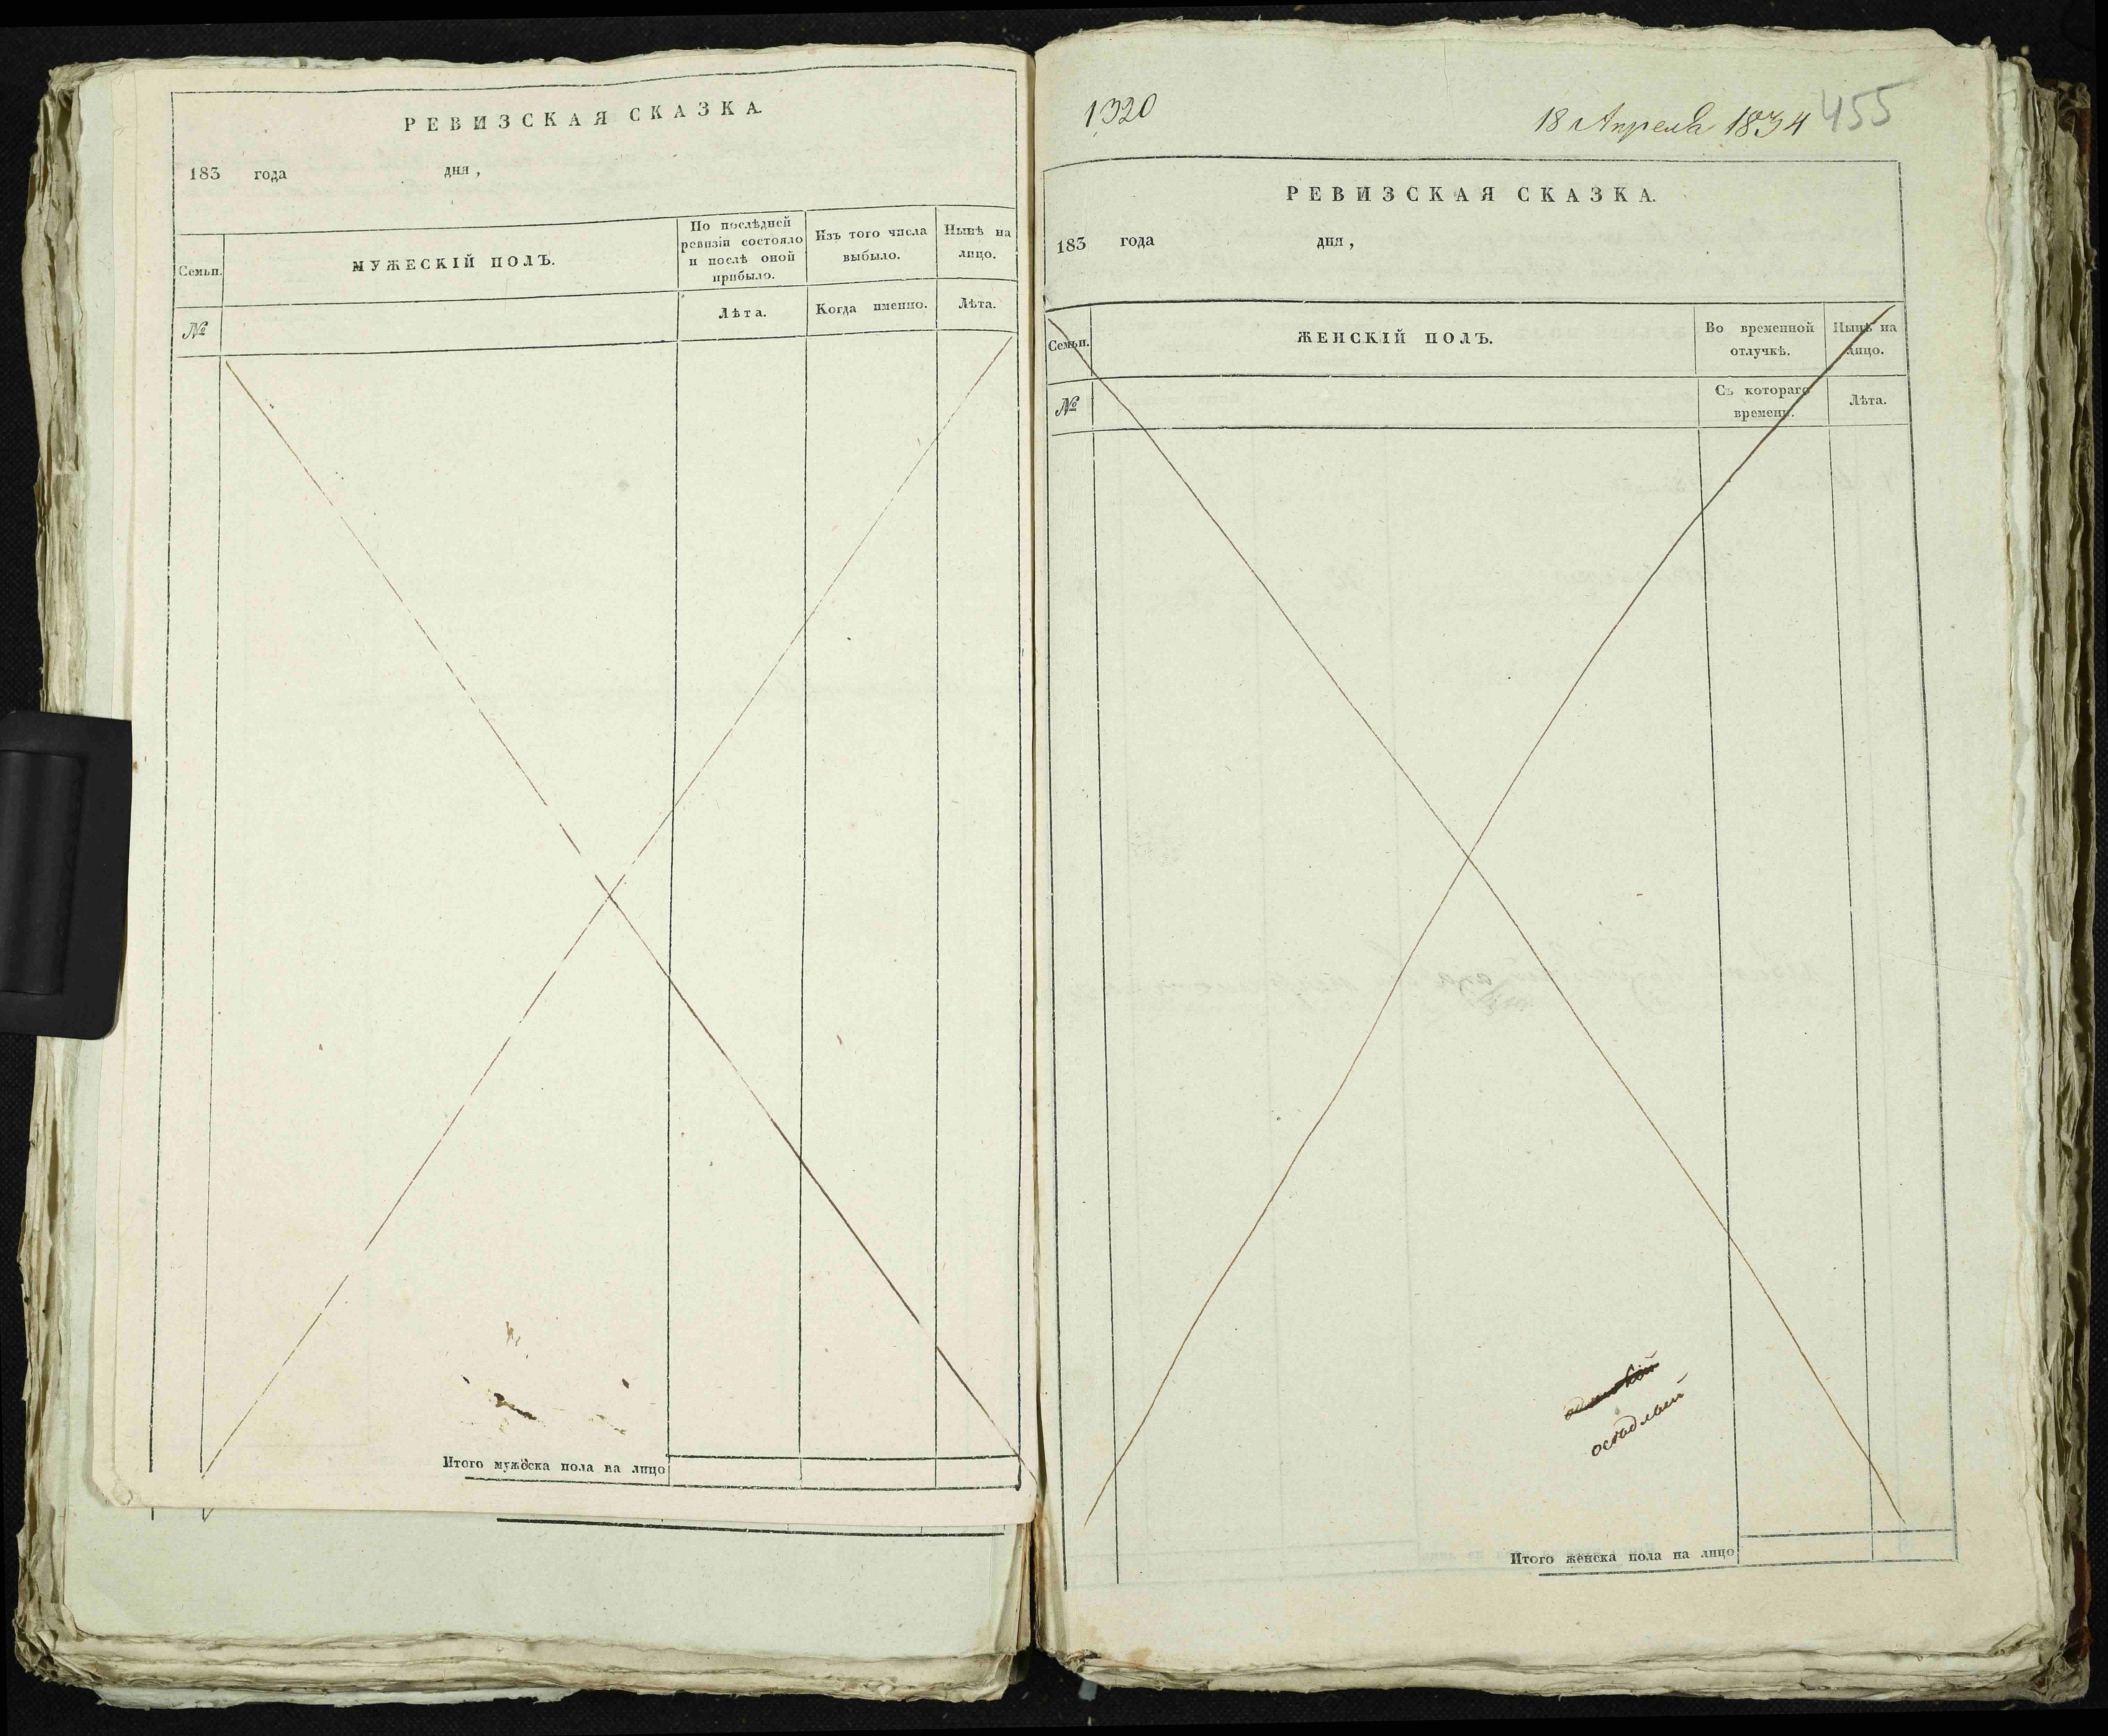 РЕВИЗСКАЯ СКАЗКА.
183 года дня,
Семьи.
МУЖЕСКІЙ ПОЛЪ.
По послѣдней
ревизіи состояло
и послѣ оной
прибыло.
Изъ того числа
выбыло.
Нынѣ на
лицо.
№
Лѣта.
Когда именно.
Лѣта.
Итого мужеска пола на лицо
1320
18 Апреля 1834
455
РЕВИЗСКАЯ СКАЗКА.
183 года дня,
Семьи.
ЖЕНСКІЙ ПОЛЪ.
Во временной
отлучкѣ.
Нынѣ на
лицо.
№
Съ котораго
времени.
Лѣта.
оседлый
Итого женска пола на лицо